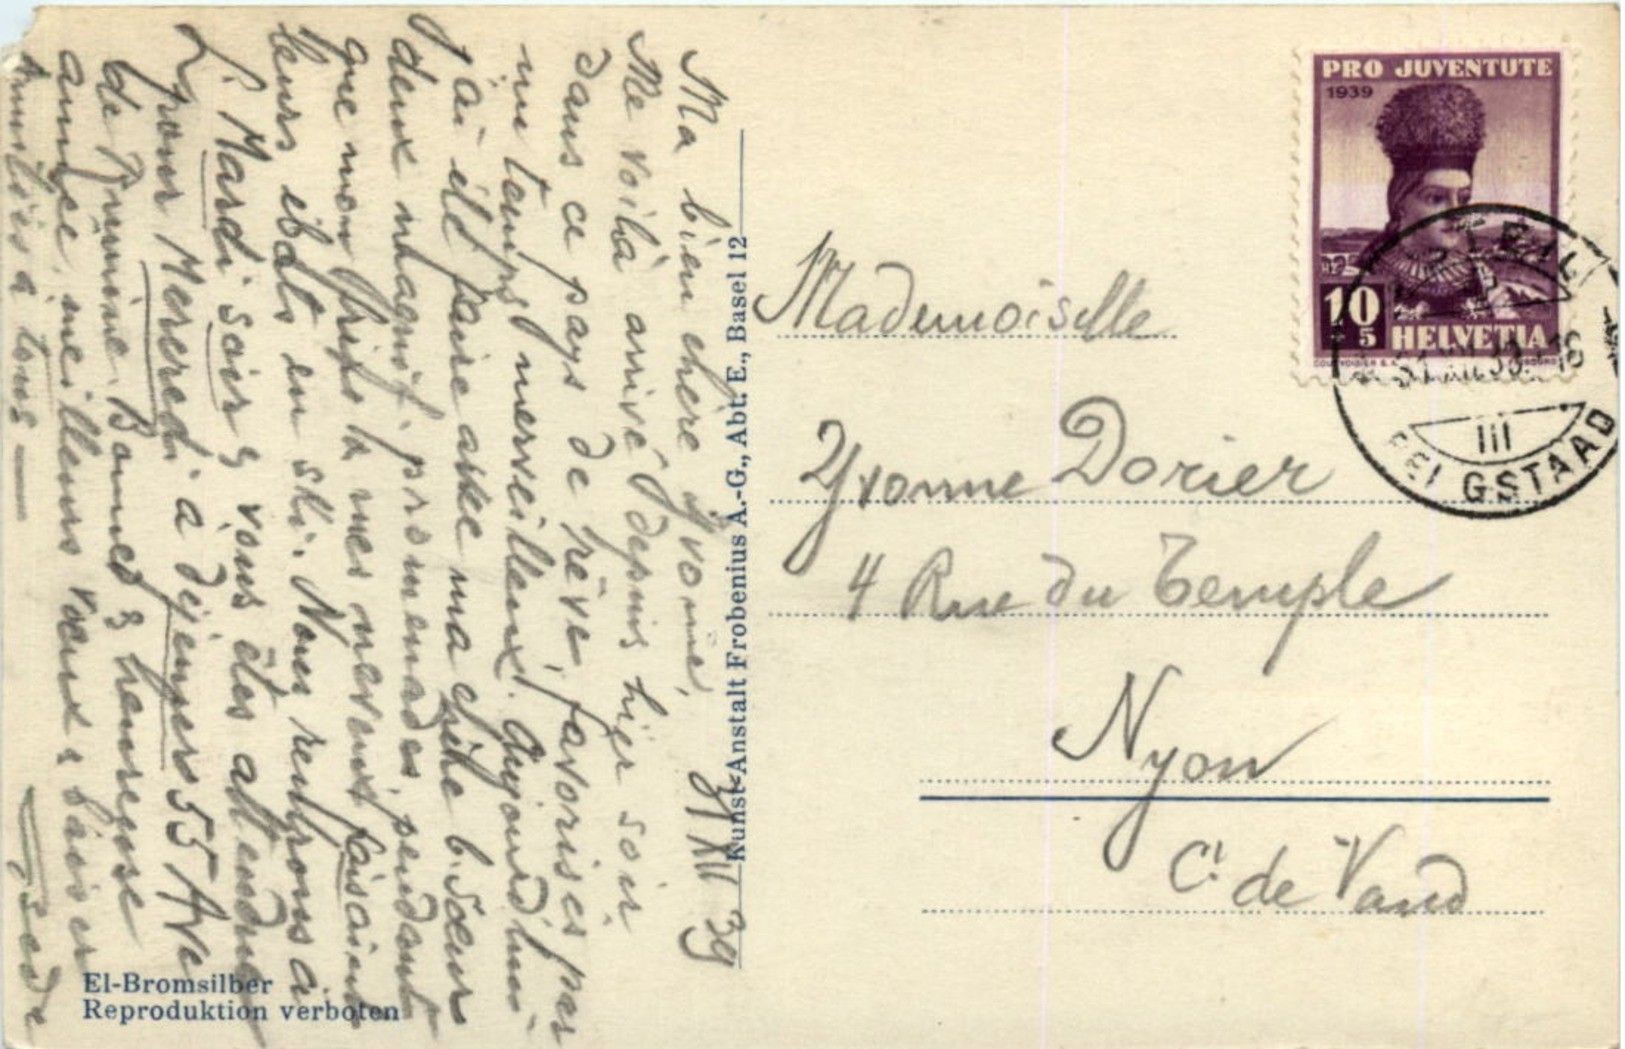 31 XII 39
Ma bien chère Yvonne,
Me voilà arrivé depuis hier soir
dans ce pays de rêve, favorisés par
un temps merveilleux. Aujourd'hui
j'ai été faire avec ma chère b. Sœur
deux magnif. promenades, pendant
que mon frère & mes neveux faisaient
leurs ébats en ski. Nous rentrons à
L. Mardi soir & vous êtes attendue
pour Mercredi à déjeuner 55 Ave
de Rumine. Bonne & heureuse
année, meilleurs vœux & baisers
à tous
El-Bromsilber
Reproduktion verboten
Kunst-Anstalt Frobenius A.-G., Abt. E., Basel 12
PRO JUVENTUTE
1939
10
5
HELVETIA
III
BEI GSTAAD
Mademoiselle
Yvonne Dorier
4 Rue du Temple
Nyon
Ct de Vaud